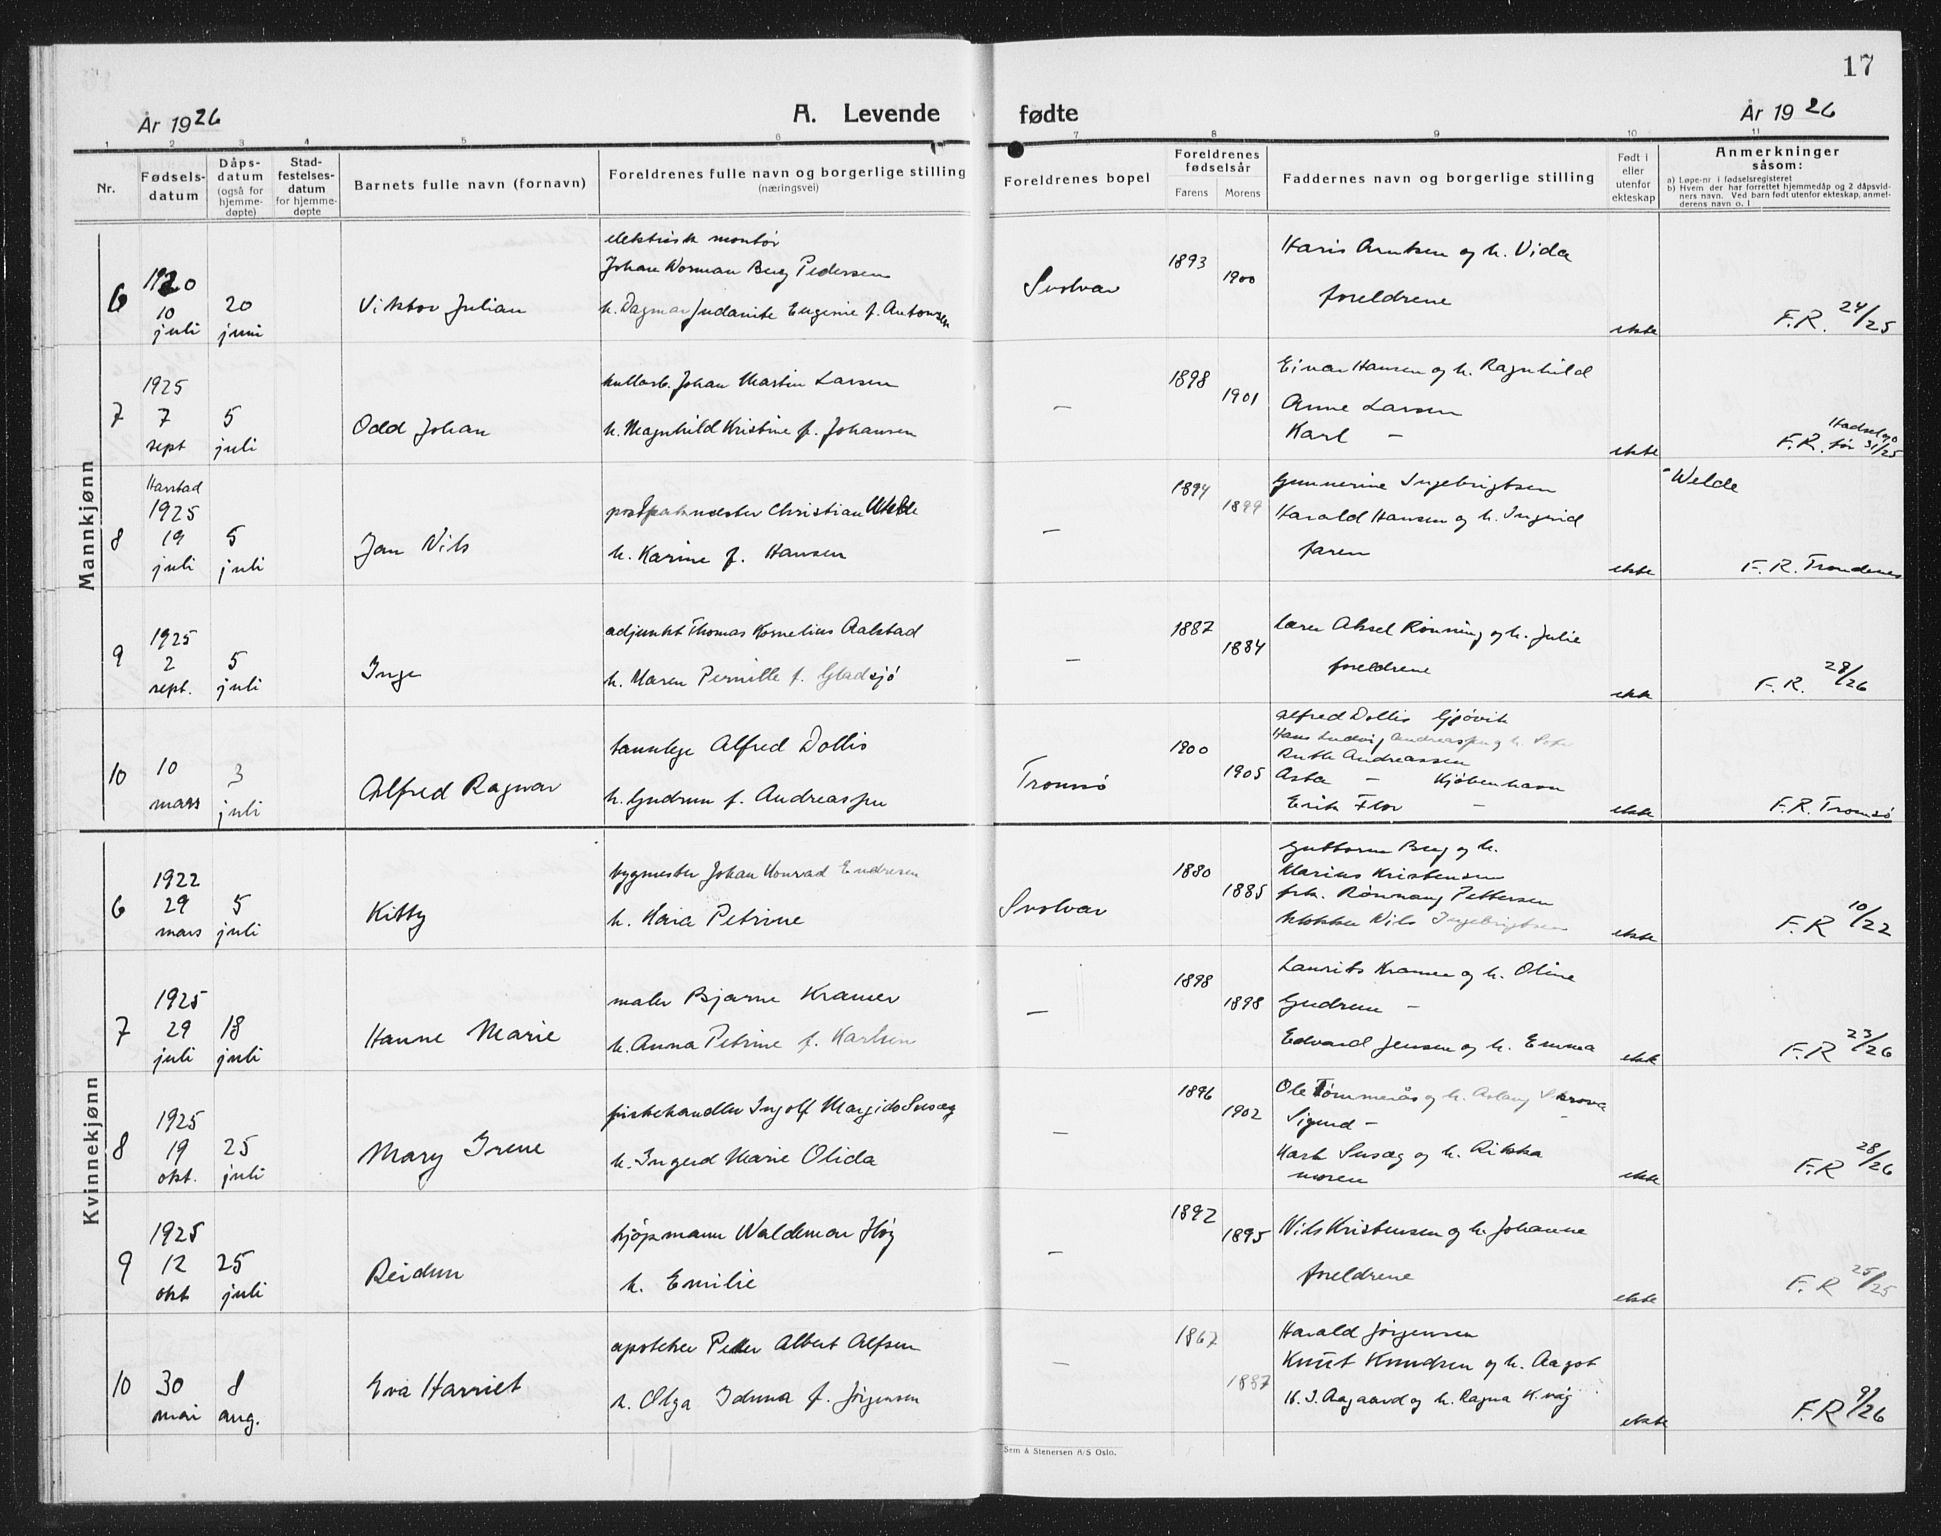 17
År 1926
A. Levende
fødte
År 1926
1 2 3 4 5 6 7 8 9 10 11
Nr.
Fødsels-
datum
Dåps-
datum
(også for
hjemme-
døpte)
Stad-
festelses-
datum
for hjemme-
døpte
Barnets fulle navn (fornavn)
Foreldrenes fulle navn og borgerlige stilling
(næringsvei)
Foreldrenes bopel
Foreldrenes
fødselsår
Farens
Morens
Faddernes navn og borgerlige stilling
Født i
eller
utenfor
ekteskap
Anmerkninger
såsom:
a) Løpe-nr i fødselsregisteret
b) Hvem der har forrettet hjemmedåp og 2 dåpsvid-
ners navn. Ved barn født utenfor ekteskap, anmel-
derens navn o. l
Mannkjønn
6
1920
10
juli
20
juni
Viktor Julian
elektrisk montör
Johan Norman Berg Pedersen
h. Dagmar Judanite Eugenie f. Antonsen
Svolvær
1893
1900
Haris Arntsen og h. Vida
foreldrene
ekte
F.R. 24/25
7
1925
7
sept
5
juli
Odd Johan
kullarb. Johan Martin Larsen
h. Magnhild Kristine f. Johansen
—
1898
1901
Einar Hansen og h. Ragnhild
Anne Larsen
Karl —
ekte
Hadsel
F.R. for 31/25
8
Harstad
1925
19
juli
5
juli
Jan Nils
postpakmester Christian Welde
h. Karine f. Hansen
—
1894
1899
Gunnerine Ingebrigtsen
Harald Hansen og h. Ingrid
faren
ekte
- Welde
F. R. Trondenes
9
1925
2
sept.
5
juli
Inge
adjunkt Thomas Kornelius Aalstad
h. Maren Pernille f. Gladsjö
—
1887
1884
Lærer Aksel Rönning og h. Julie
foreldrene
ekte
F. R. 28/26
10
10
mars
3
juli
Alfred Ragnar
tannlege Alfred Dollis
h. Gudrun f. Andreassen
Tromsö
1900
1905
Alfred Dollis Gjövik
Hans Ludvig Andreassen og h.
Ruth Andreassen
Asta — Kjöbenhavn
Erik Flor —
ekte
F.R. Tromsö
Kvinnekjønn
6
1922
29
mars
5
juli
Kitty
bygmester Johan Konrad Endresen
h. Hara Petrine
Svolvær
1880
1885
Guttorm Berg og h.
Marius Kristensen
frk. Rönnaug Pettersen
klokker Nils Ingebrigtsen
ekte
F.R 10/22
7
1925
29
juli
18
juli
Hanne Marie
maler Bjarne Kramer
h. Anna Petrine f. Karlsen
—
1898
1898
Laurits Kramer og h. Oline
Gudrun —
Edvard Jensen og h. Emma
ekte
F.R 23/26
8
1925
19
okt.
25
juli
Mary Irene
fiskehandler Ingolf Margido Svesæg
h. Ingerd Marie Olida
—
1896
1902
Ole Tömmerås og h. Aslaug Skrova
Sigurd — —
Karl Svesæg og h. Rikka
moren
ekte
F.R 28/26
9
1925
12
okt
25
juli
Reidun
kjöpmann Waldemar Höy
h. Emilie
—
1892
1895
Nils Kristensen og h. Johanne
foreldrene
ekte
F. R 25/25
10
30
mai
8
aug.
Eva Harriet
apoteker Peter Albert Alfsen
h. Olga Iduna f. Jörgensen
—
1867
1887
Harald Jörgensen
Knut Knudsen og h. Aagot
K. I. Aagaard og h. Ragna Kvæg
ekte
F.R 9/26
Sem & Stenersen A/S Oslo.